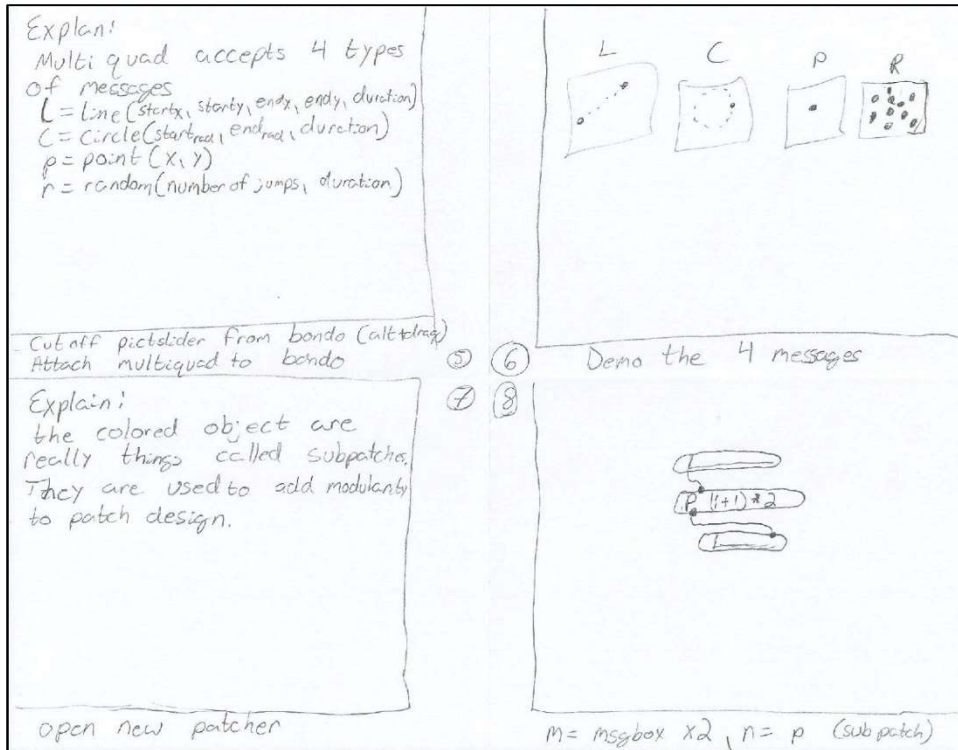 Explan:
Multiquad accepts 4 types
of messages
L = Line (startx, starty, endx, endy, duration)
C = Circle (start rad, end rad, duration)
p = point (x, y)
r = random (number of jumps, duration)
Cut off pictslider from bondo (alt+drag)
Attach multiquad to bondo
5
L C P R
6
Demo the 4 messages
7
Explain:
the colored object are
really things called subpatches.
They are used to add modularity
to patch design.
open new patcher
8
P (i+1) * 2
m = msgbox x2, n = p (subpatch)